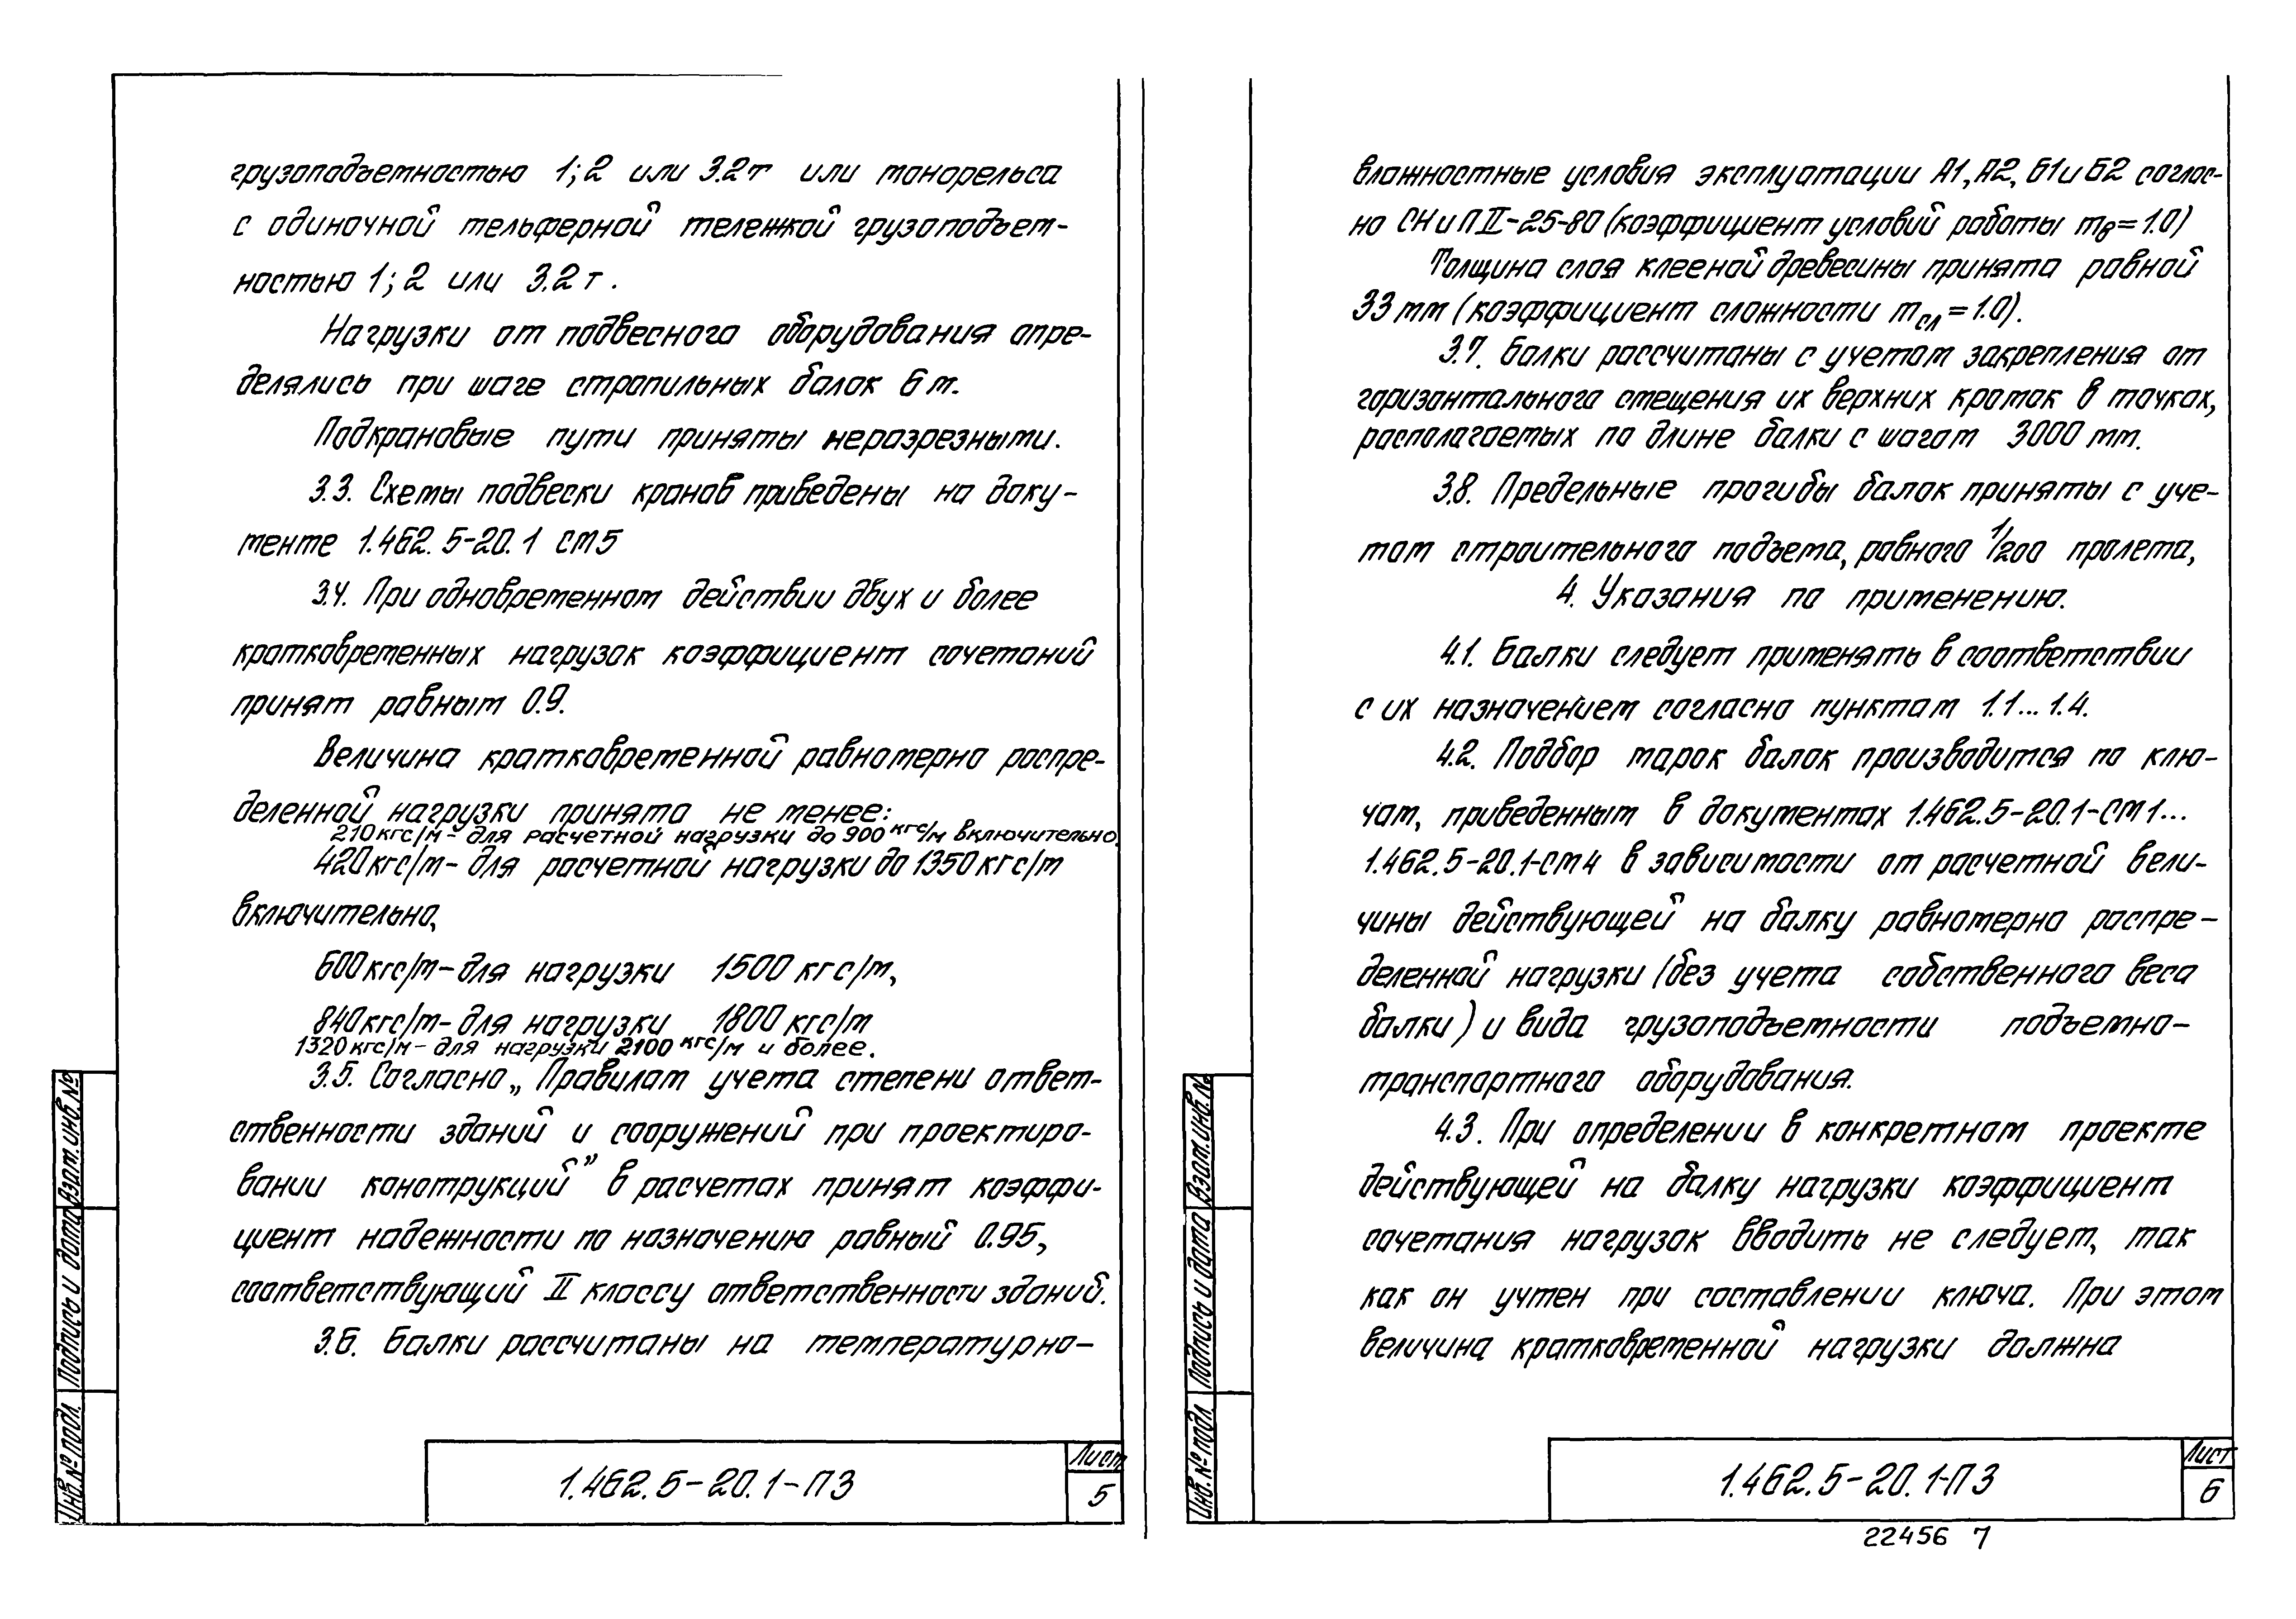 грузоподъемностью 1; 2 или 3.2т или монорельса
с одиночной тельферной тележкой грузоподъем-
ностью 1; 2 или 3.2т.
Нагрузки от подвесного оборудования опре-
делялись при шаге стропильных балок 6м.
Подкрановые пути приняты неразрезными.
3.3. Схемы подвески кранов приведены на доку-
менте 1.462.5-20.1 СМ5
3.4. При одновременном действии двух и более
кратковременных нагрузок коэффициент сочетаний
принят равным 0.9.
Величина кратковременной равномерно распре-
деленной нагрузки принята не менее:
210кгс/м - для расчетной нагрузки до 900 кгс/м включительно.
420кгс/м - для расчетной нагрузки до 1350 кгс/м
включительно,
600кгс/м - для нагрузки 1500 кгс/м,
840кгс/м - для нагрузки 1800 кгс/м
1320 кгс/м - для нагрузки 2100 кгс/м и более.
3.5. Согласно „Правилам учета степени ответ-
ственности зданий и сооружений при проектиро-
вании конструкций" в расчетах принят коэффи-
циент надежности по назначению равный 0.95,
соответствующий II классу ответственности зданий.
3.6. Балки рассчитаны на температурно-
Инв.№ подл.
Подпись и дата
Взам.инв.№
1.462.5-20.1-ПЗ
Лист
5
влажностные условия эксплуатации А1, А2, Б1 и Б2 соглас-
но СНиП II-25-80 (коэффициент условий работы mв=1.0)
Толщина слоя клееной древесины принята равной
33 мм (коэффициент сложности mсл=1.0).
3.7. Балки рассчитаны с учетом закрепления от
горизонтального смещения их верхних кромок в точках,
располагаемых по длине балки с шагом 3000 мм.
3.8. Предельные прогибы балок приняты с уче-
том строительного подъема, равного 1/200 пролета,
4. Указания по применению.
4.1. Балки следует применять в соответствии
с их назначением согласно пунктам 1.1... 1.4.
4.2. Подбор марок балок производится по клю-
чам, приведенным в документах 1.462.5-20.1-СМ1...
1.462.5-20.1-СМ4 в зависимости от расчетной вели-
чины действующей на балку равномерно распре-
деленной нагрузки (без учета собственного веса
балки) и вида грузоподъемности подъемно-
транспортного оборудования.
4.3. При определении в конкретном проекте
действующей на балку нагрузки коэффициент
сочетания нагрузок вводить не следует, так
как он учтен при составлении ключа. При этом
величина кратковременной нагрузки должна
Инв.№ подл.
Подпись и дата
Взам.инв.№
1.462.5-20.1-ПЗ
Лист
6
22456 7